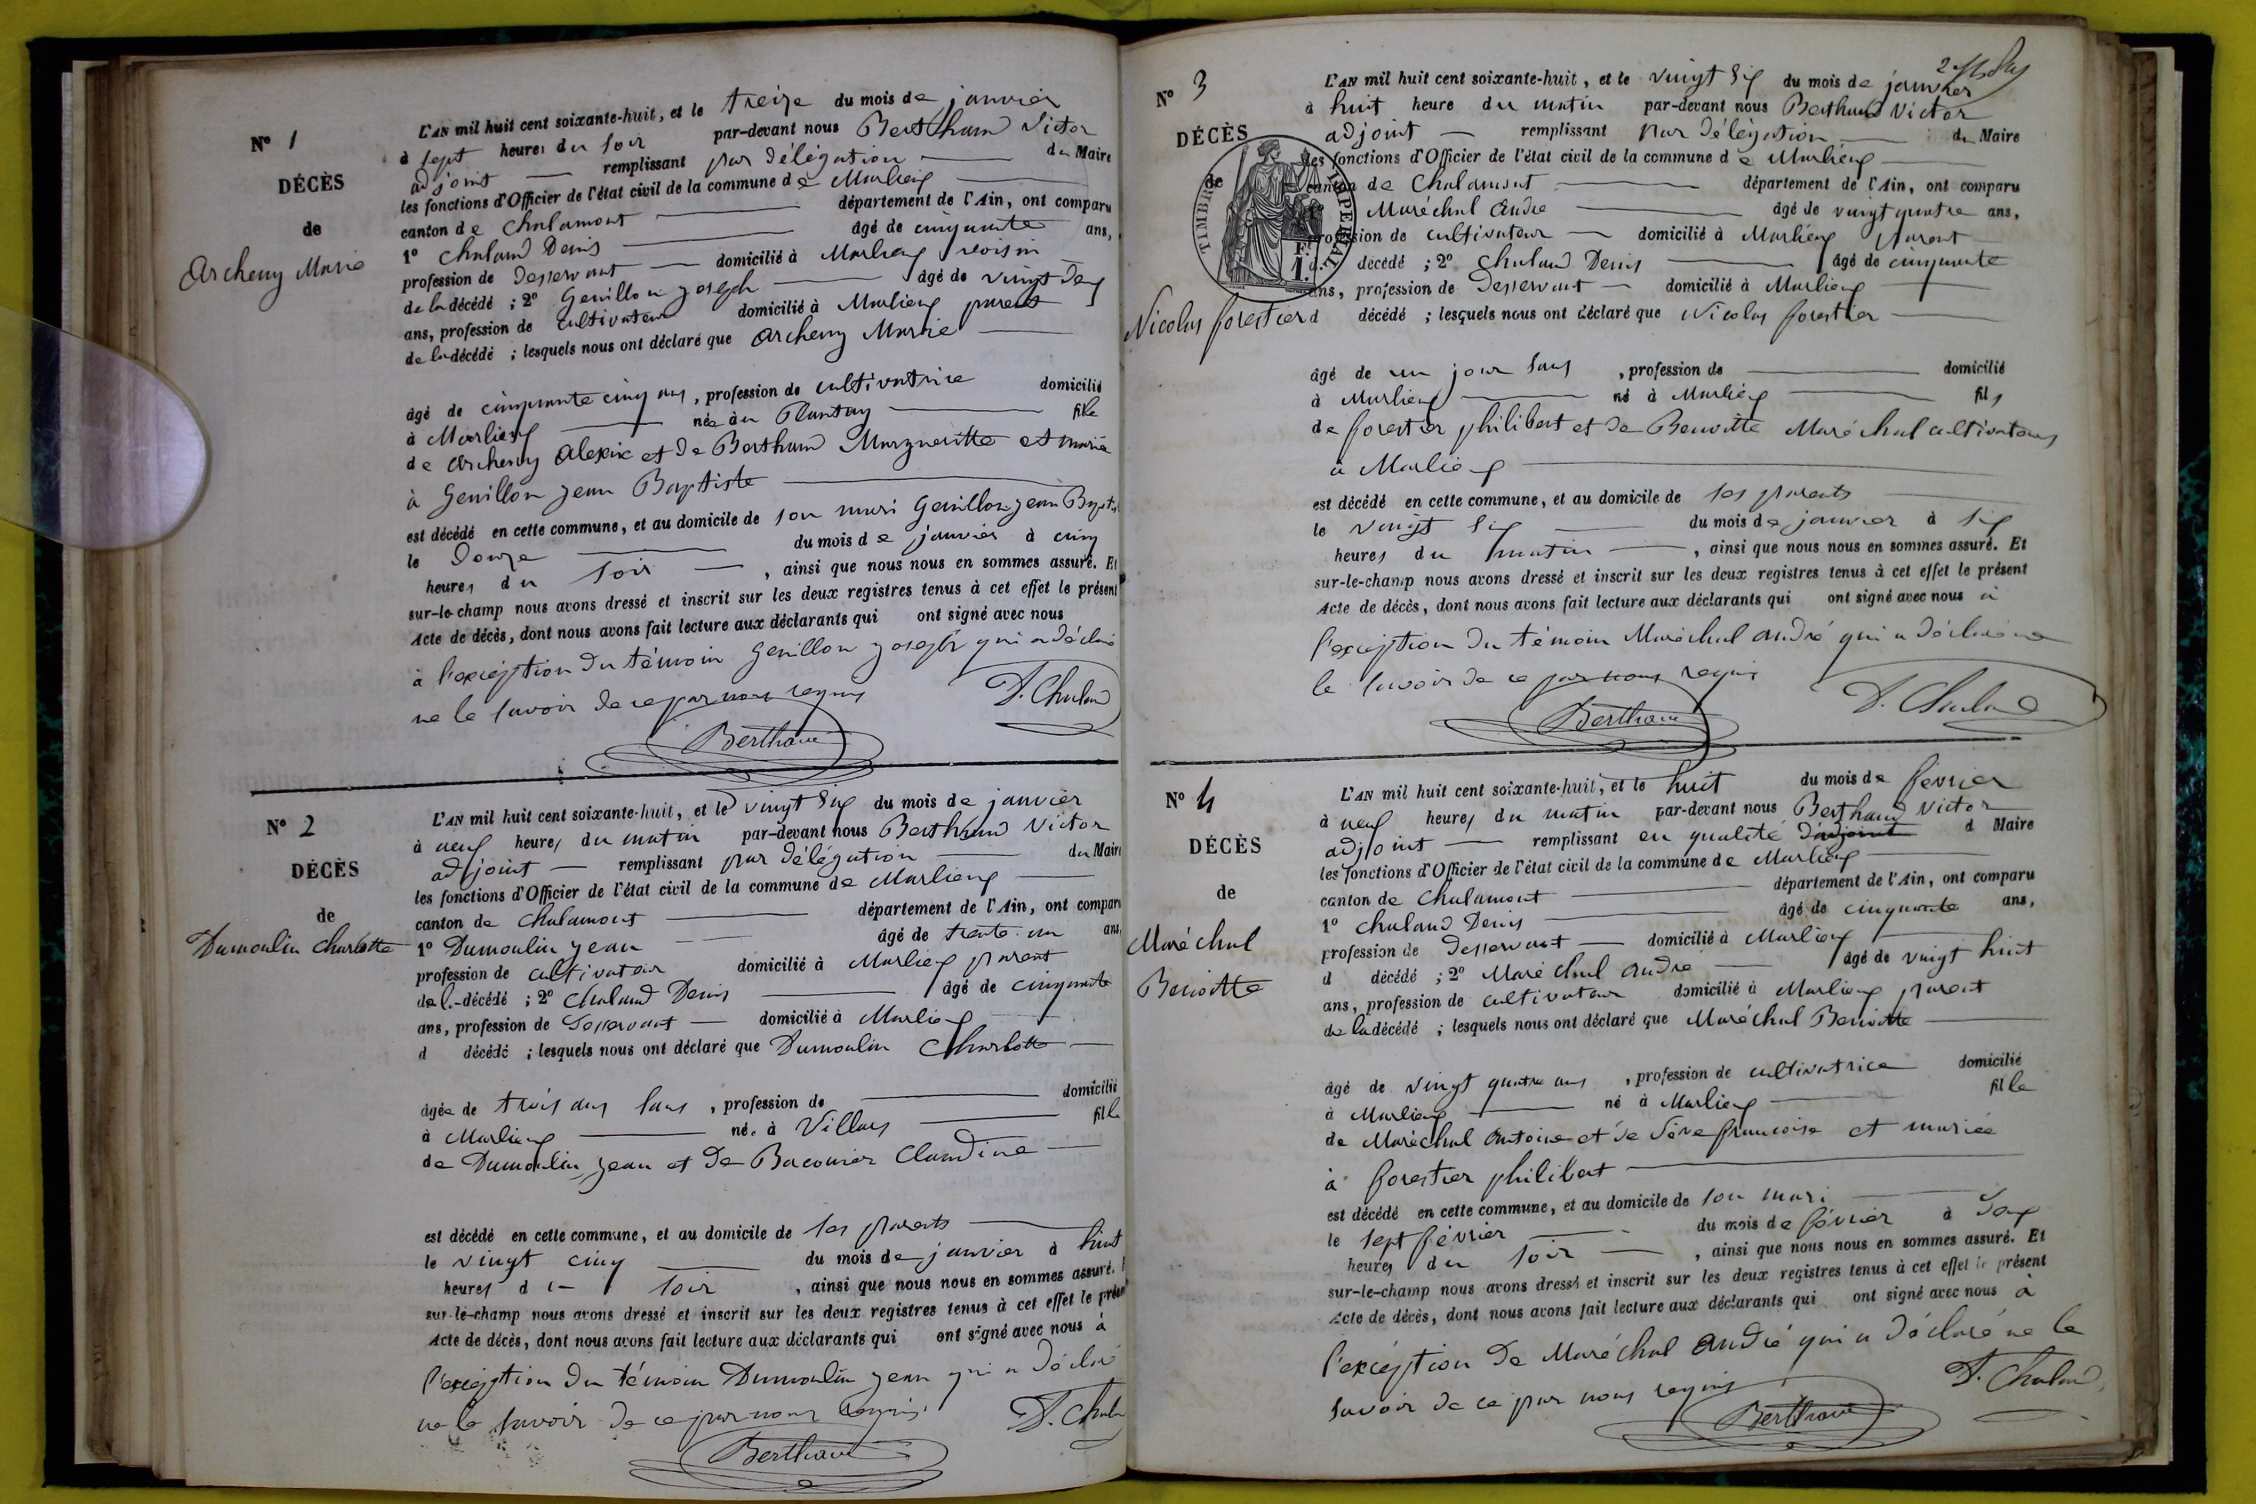 N° 1
DÉCÈS
de
Archeny Marie
L'AN mil huit cent soixante-huit, et le treize du mois de janvier
à sept heures du soir par-devant nous Berthaud Victor
adjoint remplissant par délégation du Maire
les fonctions d'Officier de l'état civil de la commune de Marlieux
canton de Chalamont département de l'Ain, ont comparu
1° Chaland Denis âgé de cinquante ans,
profession de desservant domicilié à Marlieux voisin
de la décédé ; 2° Genillon Joseph âgé de vingt deux
ans, profession de cultivateur domicilié à Marlieux parent
de la décédé ; lesquels nous ont déclaré que Archeny Marie
âgé de cinquante cinq ans, profession de cultivatrice domicilié
à Marlieux née au Plantay fille
de Archeny Alexix et de Berthaud Margueritte et mariée
à Genillon Jean Baptiste
est décédé en cette commune, et au domicile de son mari Genillon Jean Bapt
le douze du mois de janvier à cinq
heures du soir , ainsi que nous nous en sommes assuré. Et
sur-le-champ nous avons dressé et inscrit sur les deux registres tenus à cet effet le présent
Acte de décès, dont nous avons fait lecture aux déclarants qui ont signé avec nous
à l'exception du témoin Genillon Joseph qui a déclaré
ne le savoir de ce par nous requis
D. Chaland
Berthaud
N° 2
DÉCÈS
de
Dumoulin Charlotte
L'AN mil huit cent soixante-huit, et le vingt six du mois de janvier
à neuf heures du matin par-devant nous Berthaud Victor
adjoint remplissant par délégation du Maire
les fonctions d'Officier de l'état civil de la commune de Marlieux
canton de Chalamont département de l'Ain, ont comparu
1° Dumoulin Jean âgé de trente un ans,
profession de cultivateur domicilié à Marlieux parent
de l. décédé ; 2° Chaland Denis âgé de cinquante
ans, profession de desservant domicilié à Marlieux
d décédé ; lesquels nous ont déclaré que Dumoulin Charlotte
âgée de trois ans sans , profession de domicilié
à Marlieux née à Villars fille
de Dumoulin Jean et de Bacconier Claudine
est décédé en cette commune, et au domicile de ses parents
le vingt cinq du mois de janvier à huit
heures du soir , ainsi que nous nous en sommes assuré.
sur-le-champ nous avons dressé et inscrit sur les deux registres tenus à cet effet le présent
Acte de décès, dont nous avons fait lecture aux déclarants qui ont signé avec nous à
l'exception du témoin Dumoulin Jean qui a déclaré
ne le savoir de ce par nous requis.
D. Chaland
Berthaud
N° 3
DÉCÈS
de
Nicolas forestier
TIMBRE IMPÉRIAL
1 F.
L'AN mil huit cent soixante-huit, et le vingt six du mois de janvier
à huit heure du matin par-devant nous Berthaud Victor
adjoint remplissant par délégation du Maire
les fonctions d'Officier de l'état civil de la commune de Marlieux
canton de Chalamont département de l'Ain, ont comparu
Maréchal André âgé de vingt quatre ans,
profession de cultivateur domicilié à Marlieux parent
d décédé ; 2° Chaland Denis âgé de cinquante
ans, profession de desservant domicilié à Marlieux
d décédé ; lesquels nous ont déclaré que Nicolas forestier
âgé de un jour sans , profession de domicilié
à Marlieux né à Marlieux fils
de forestier philibert et de Benoitte Maréchal cultivateurs
à Marlieux
est décédé en cette commune, et au domicile de ses parents
le vingt six du mois de janvier à six
heures du matin , ainsi que nous nous en sommes assuré. Et
sur-le-champ nous avons dressé et inscrit sur les deux registres tenus à cet effet le présent
Acte de décès, dont nous avons fait lecture aux déclarants qui ont signé avec nous à
l'exception du témoin Maréchal André qui a déclaré ne
le savoir de ce par nous requis
D. Chaland
Berthaud
N° 4
DÉCÈS
de
Maréchal
Benoitte
L'AN mil huit cent soixante-huit, et le huit du mois de février
à neuf heures du matin par-devant nous Berthaud Victor
adjoint remplissant en qualité d'adjoint d Maire
les fonctions d'Officier de l'état civil de la commune de Marlieux
canton de Chalamont département de l'Ain, ont comparu
1° Chaland Denis âgé de cinquante ans,
profession de desservant domicilié à Marlieux
d décédé ; 2° Maréchal André âgé de vingt huit
ans, profession de cultivateur domicilié à Marlieux parent
de la décédé ; lesquels nous ont déclaré que Maréchal Benoitte
âgé de vingt quatre ans , profession de cultivatrice domicilié
à Marlieux né à Marlieux fille
de Maréchal Antoine et de françoise et mariée
à forestier philibert
est décédé en cette commune, et au domicile de son mari
le sept février du mois de février à deux
heures du soir , ainsi que nous nous en sommes assuré. Et
sur-le-champ nous avons dressé et inscrit sur les deux registres tenus à cet effet le présent
Acte de décès, dont nous avons fait lecture aux déclarants qui ont signé avec nous à
l'exception de Maréchal André qui a déclaré ne le
savoir de ce par nous requis
D. Chaland
Berthaud